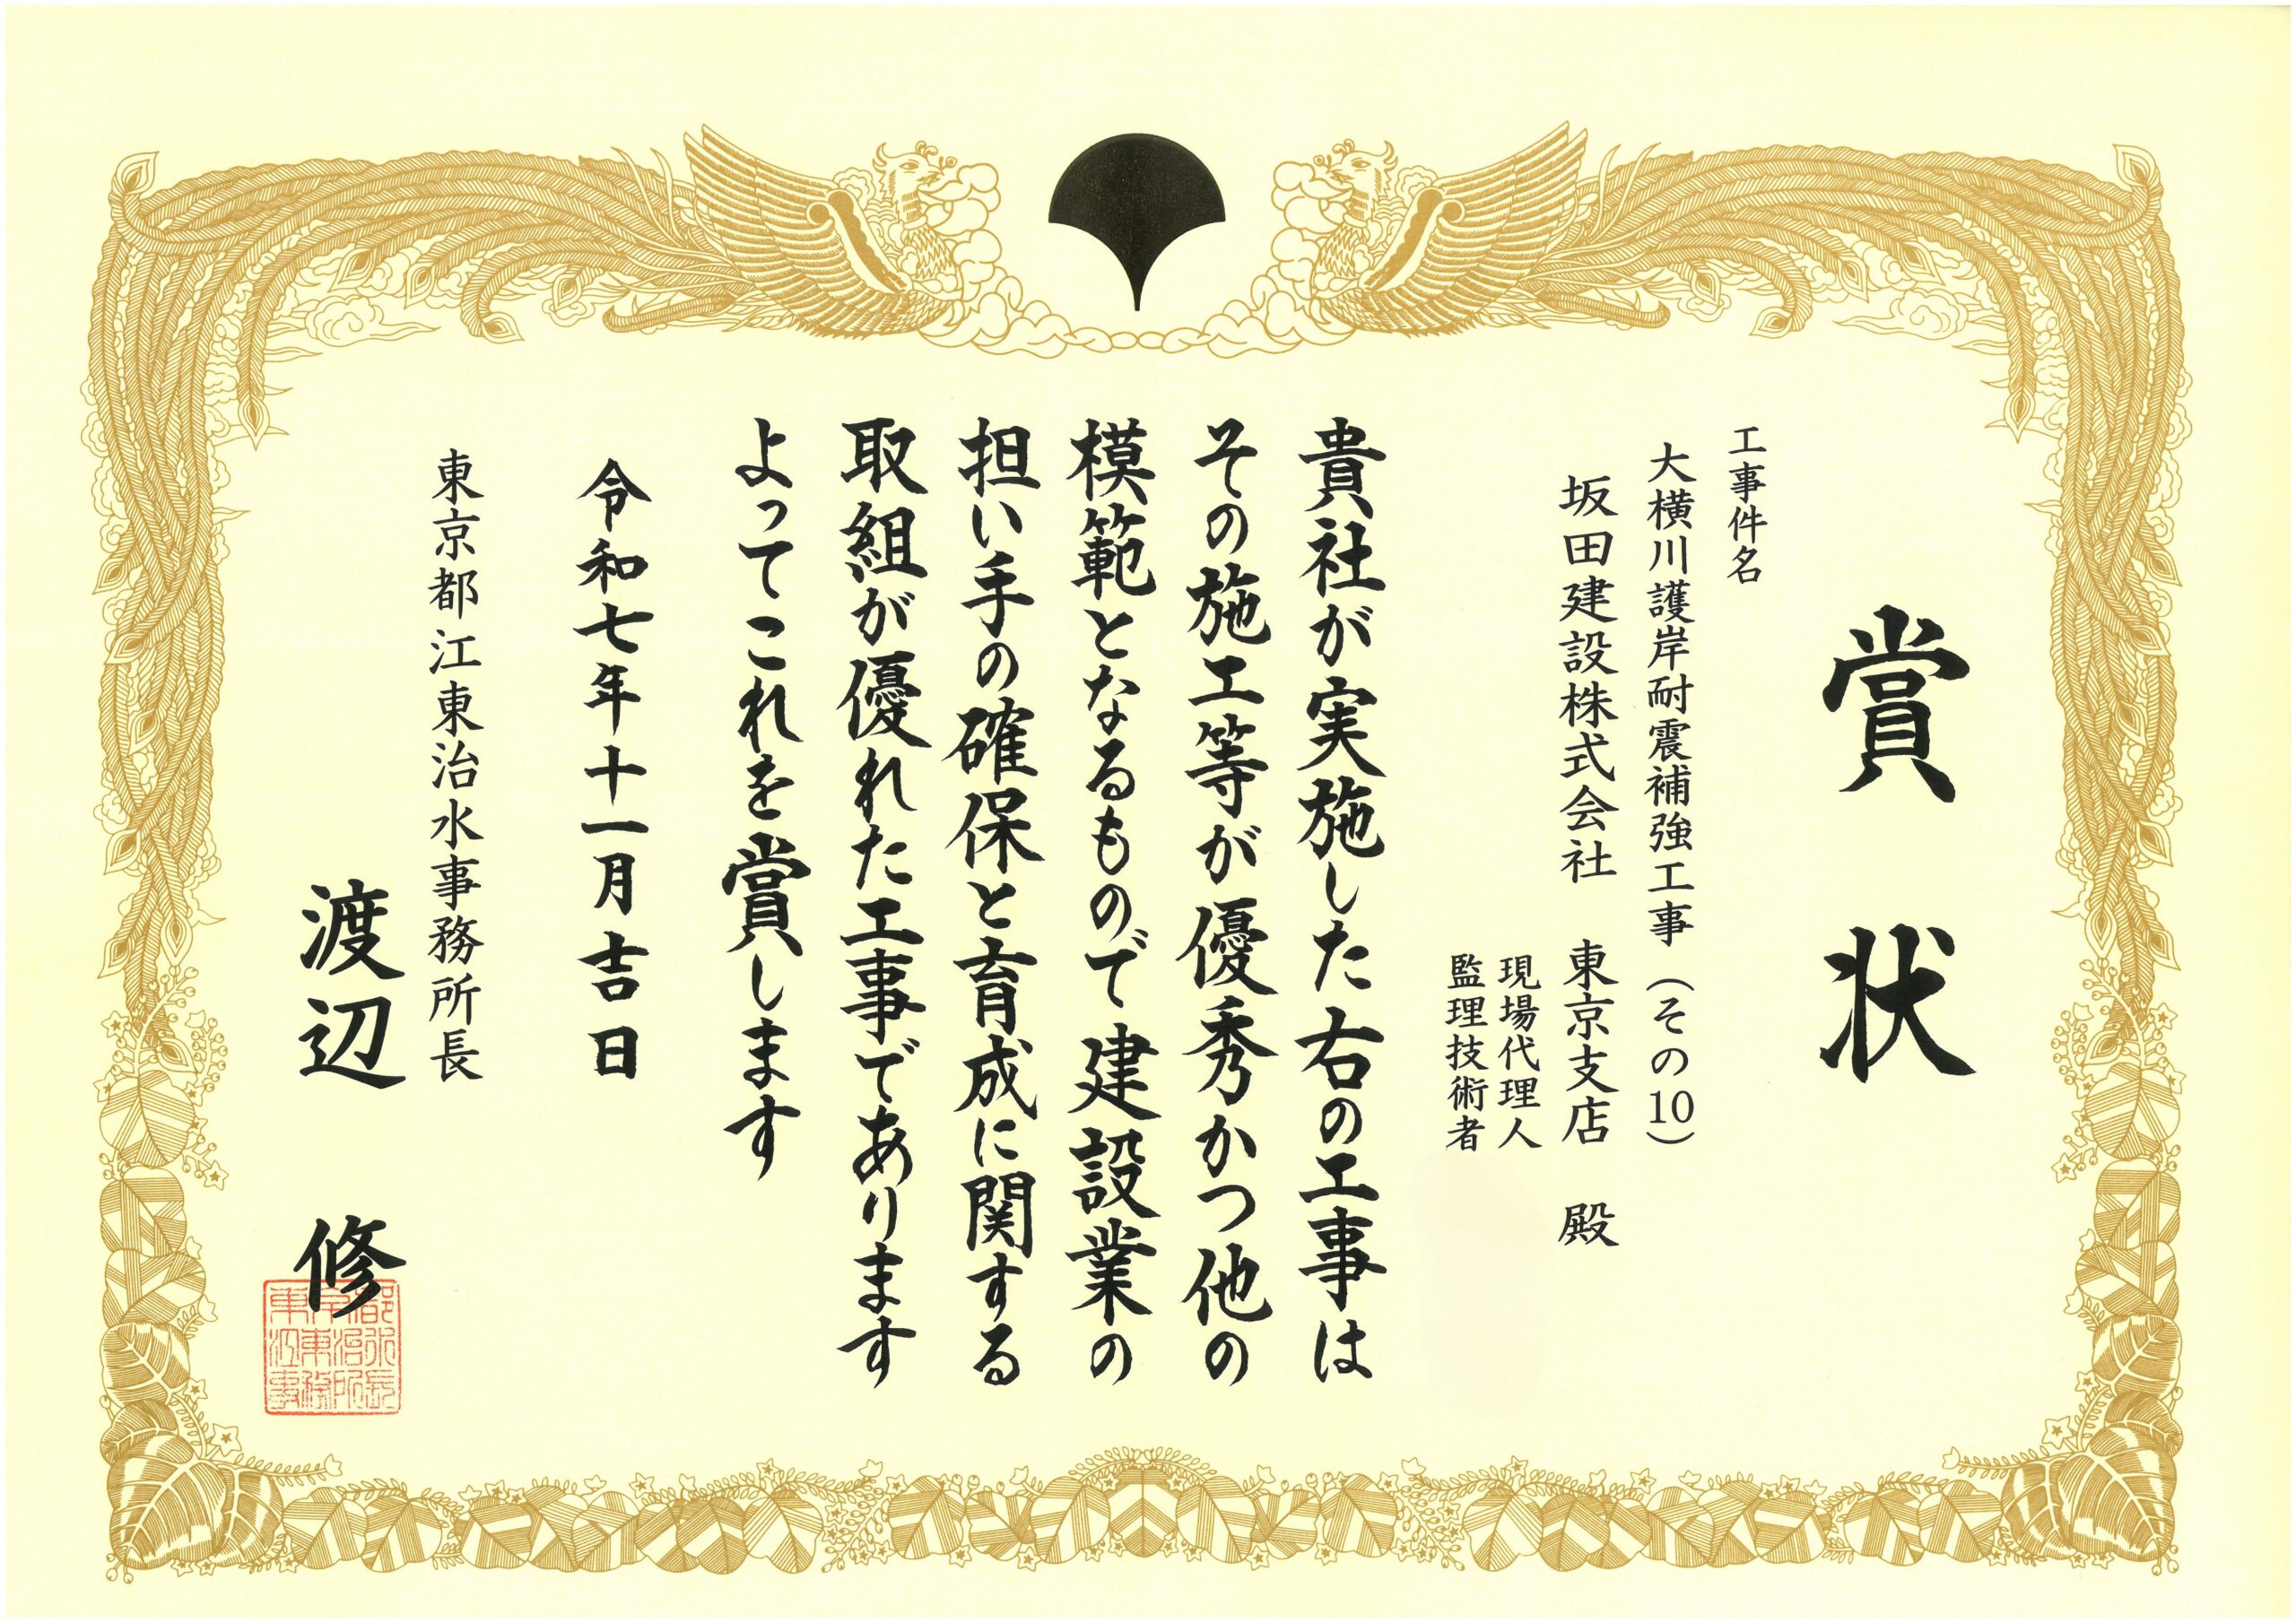 賞状
工事件名
大横川護岸耐震補強工事（その10）
坂田建設株式会社　東京支店　殿
現場代理人
監理技術者
貴社が実施した右の工事は
その施工等が優秀かつ他の
模範となるもので建設業の
担い手の確保と育成に関する
取組が優れた工事であります
よってこれを賞します
令和七年十一月吉日
東京都江東治水事務所長
渡辺　修
東京都
江東治水
事務所長